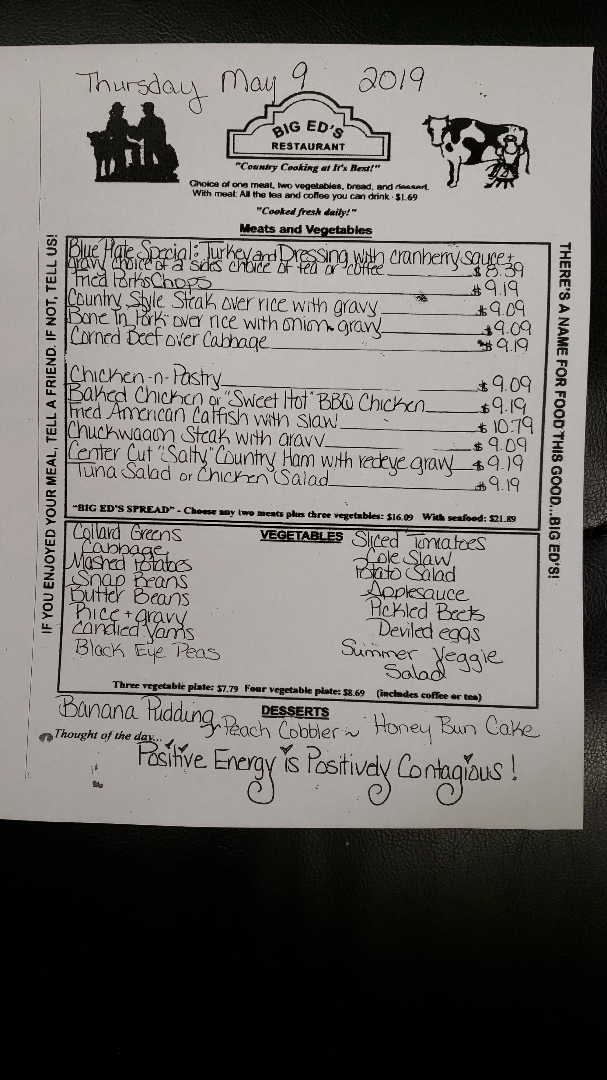 Thursday May 9 2019
BIG ED'S
RESTAURANT
"Country Cooking at It's Best!"
Choice of one meat, two vegetables, bread, and dessert.
With meal: All the tea and coffee you can drink - $1.69
"Cooked fresh daily!"
Meats and Vegetables
Blue Plate Special: Turkey and Dressing with cranberry sauce +
gravy choice of 2 sides choice of tea or coffee $ 8.39
Fried Porks Chops $ 9.19
Country Style Steak over rice with gravy $ 9.09
Bone In Pork over rice with onion gravy $ 9.09
Corned Beef over Cabbage $ 9.19
Chicken-n-Pastry $ 9.09
Baked Chicken or "Sweet Hot" BBQ Chicken $ 9.19
Fried American Catfish with slaw $ 10.79
Chuckwagon Steak with gravy $ 9.09
Center Cut "Salty" Country Ham with redeye gravy $ 9.19
Tuna Salad or Chicken Salad $ 9.19
"BIG ED'S SPREAD" - Choose any two meats plus three vegetables: $16.09 With seafood: $21.89
VEGETABLES
Collard Greens
Cabbage
Mashed Potatoes
Snap Beans
Butter Beans
Rice + gravy
Candied Yams
Black Eye Peas
Sliced Tomatoes
Cole Slaw
Potato Salad
Applesauce
Pickled Beets
Deviled eggs
Summer Veggie
Salad
Three vegetable plate: $7.79 Four vegetable plate: $8.69 (includes coffee or tea)
DESSERTS
Banana Pudding ~ Peach Cobbler ~ Honey Bun Cake
Thought of the day...
Positive Energy is Positively Contagious!
IF YOU ENJOYED YOUR MEAL, TELL A FRIEND. IF NOT, TELL US!
THERE'S A NAME FOR FOOD THIS GOOD...BIG ED'S!